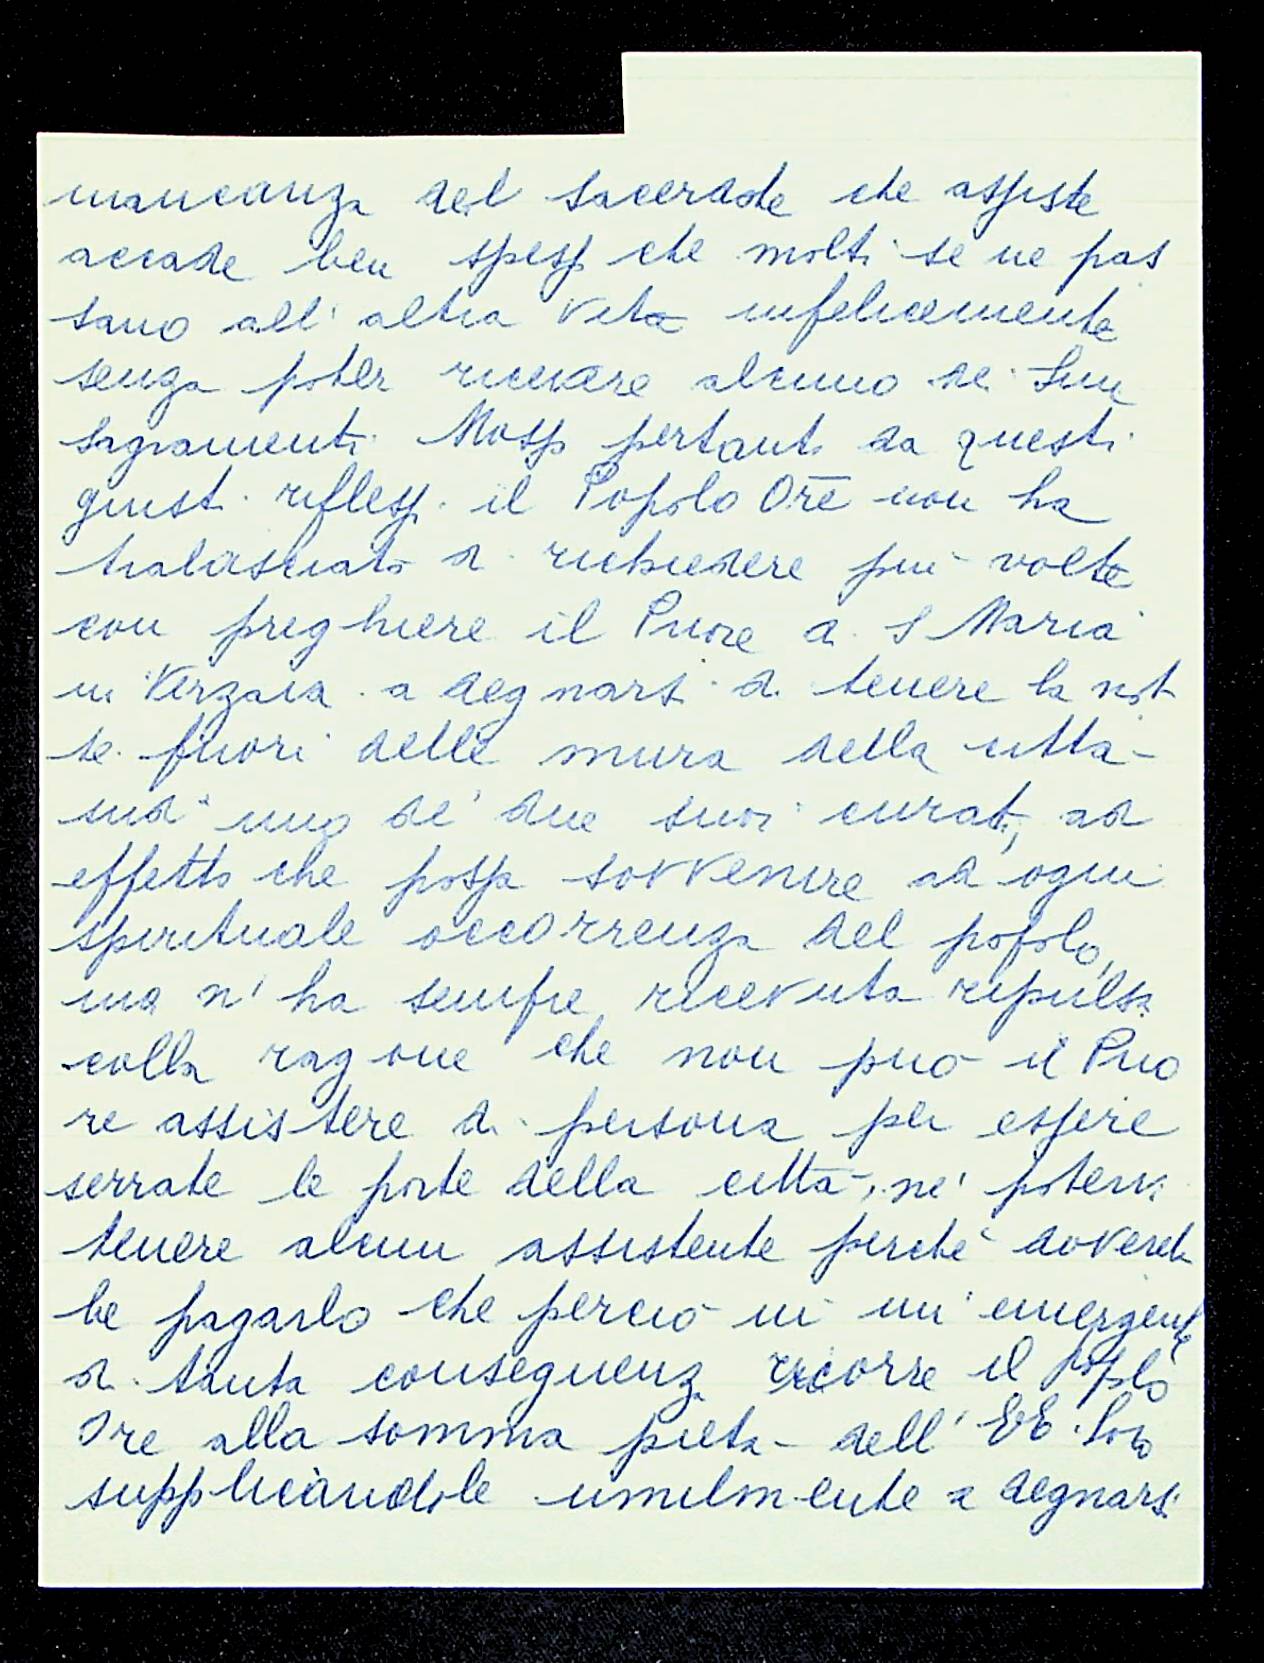 mancanza del sacerdote che assiste
accade ben spesso che molti se ne pas
sano all'altra vita infelicemente
senza poter ricevere alcuno de' Smi
sagramenti. Mosso pertanto da questi
giusti riflessi il Popolo Ore non ha
tralasciato di richiedere più volte
con preghiere il Priore di S Maria
in Verzaia a degnarsi di tenere la not
te fuori delle mura della città
sud° uno de' due suoi curati, ad
effetto che possa sovvenire ad ogni
spirituale occorrenza del popolo,
ma n'ha sempre ricevuta repulsa
colla ragione che non può il Prio
re assistere di persona per essere
serrate le porte della città, ne' potervi
tenere alcun assistente perchè dovereb
be pagarlo che perciò in un'emergente
di tanta conseguenza ricorre il Popolo
Ore alla somma pietà dell'EE. Loro
supplicandole umilmente a degnarsi